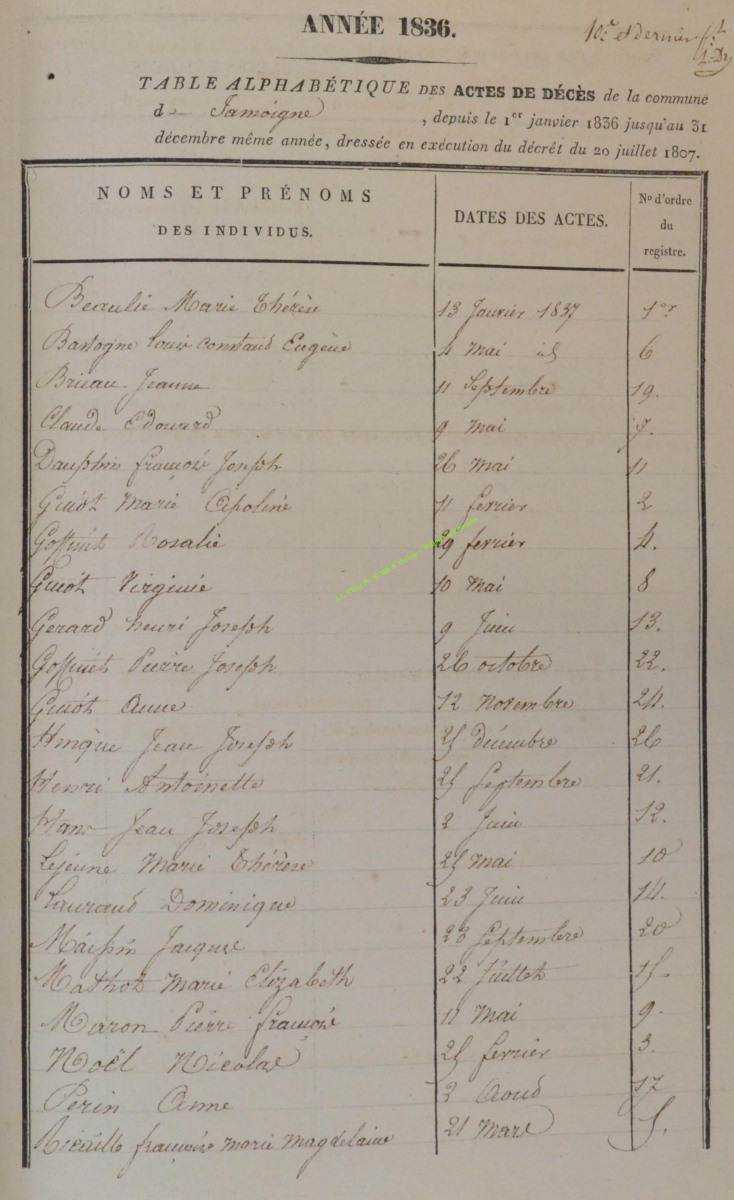 ANNÉE 1836.
1er et dernier
TABLE ALPHABÉTIQUE DES ACTES DE DÉCÈS de la commune
de Jamoigne , depuis le 1er janvier 1836 jusqu'au 31
décembre même année, dressée en exécution du décret du 20 juillet 1807.
NOMS ET PRÉNOMS DES INDIVIDUS. DATES DES ACTES. No d'ordre du registre.
Beaulié Marie Thérèse 13 Janvier 1837 1er
Bastogne Louis Constand Eugène 4 Mai id 6
Jeanne 11 Septembre 19.
Claude Edouard 9 Mai 7.
Dauphin françois Joseph 26 Mai 11
Guiot Marie Apoline 11 fevrier 2
Goffinet Rosalie 29 fevrier 4.
Guiot Virginie 10 Mai 8
Gerard henri Joseph 9 Juin 13.
Goffinet Pierre Joseph 26 octobre 22.
Guiot Anne 12 Novembre 24.
Jean Joseph 25 décembre 26
Henri Antoinette 25 Septembre 21.
Hans Jean Joseph 2 Juin 12.
Lejeune Marie Thérèse 25 Mai 10
Lauraud Dominique 23 Juin 14.
Jacques 23 Septembre 20
Mathot Marie Elizabeth 22 Juillet 15.
Maron Pierre françois 11 Mai 9.
Noël Nicolas 25 fevrier 3.
Perin Anne 2 Aoud 17
françoise marie Magdelaine 21 Mars 5.